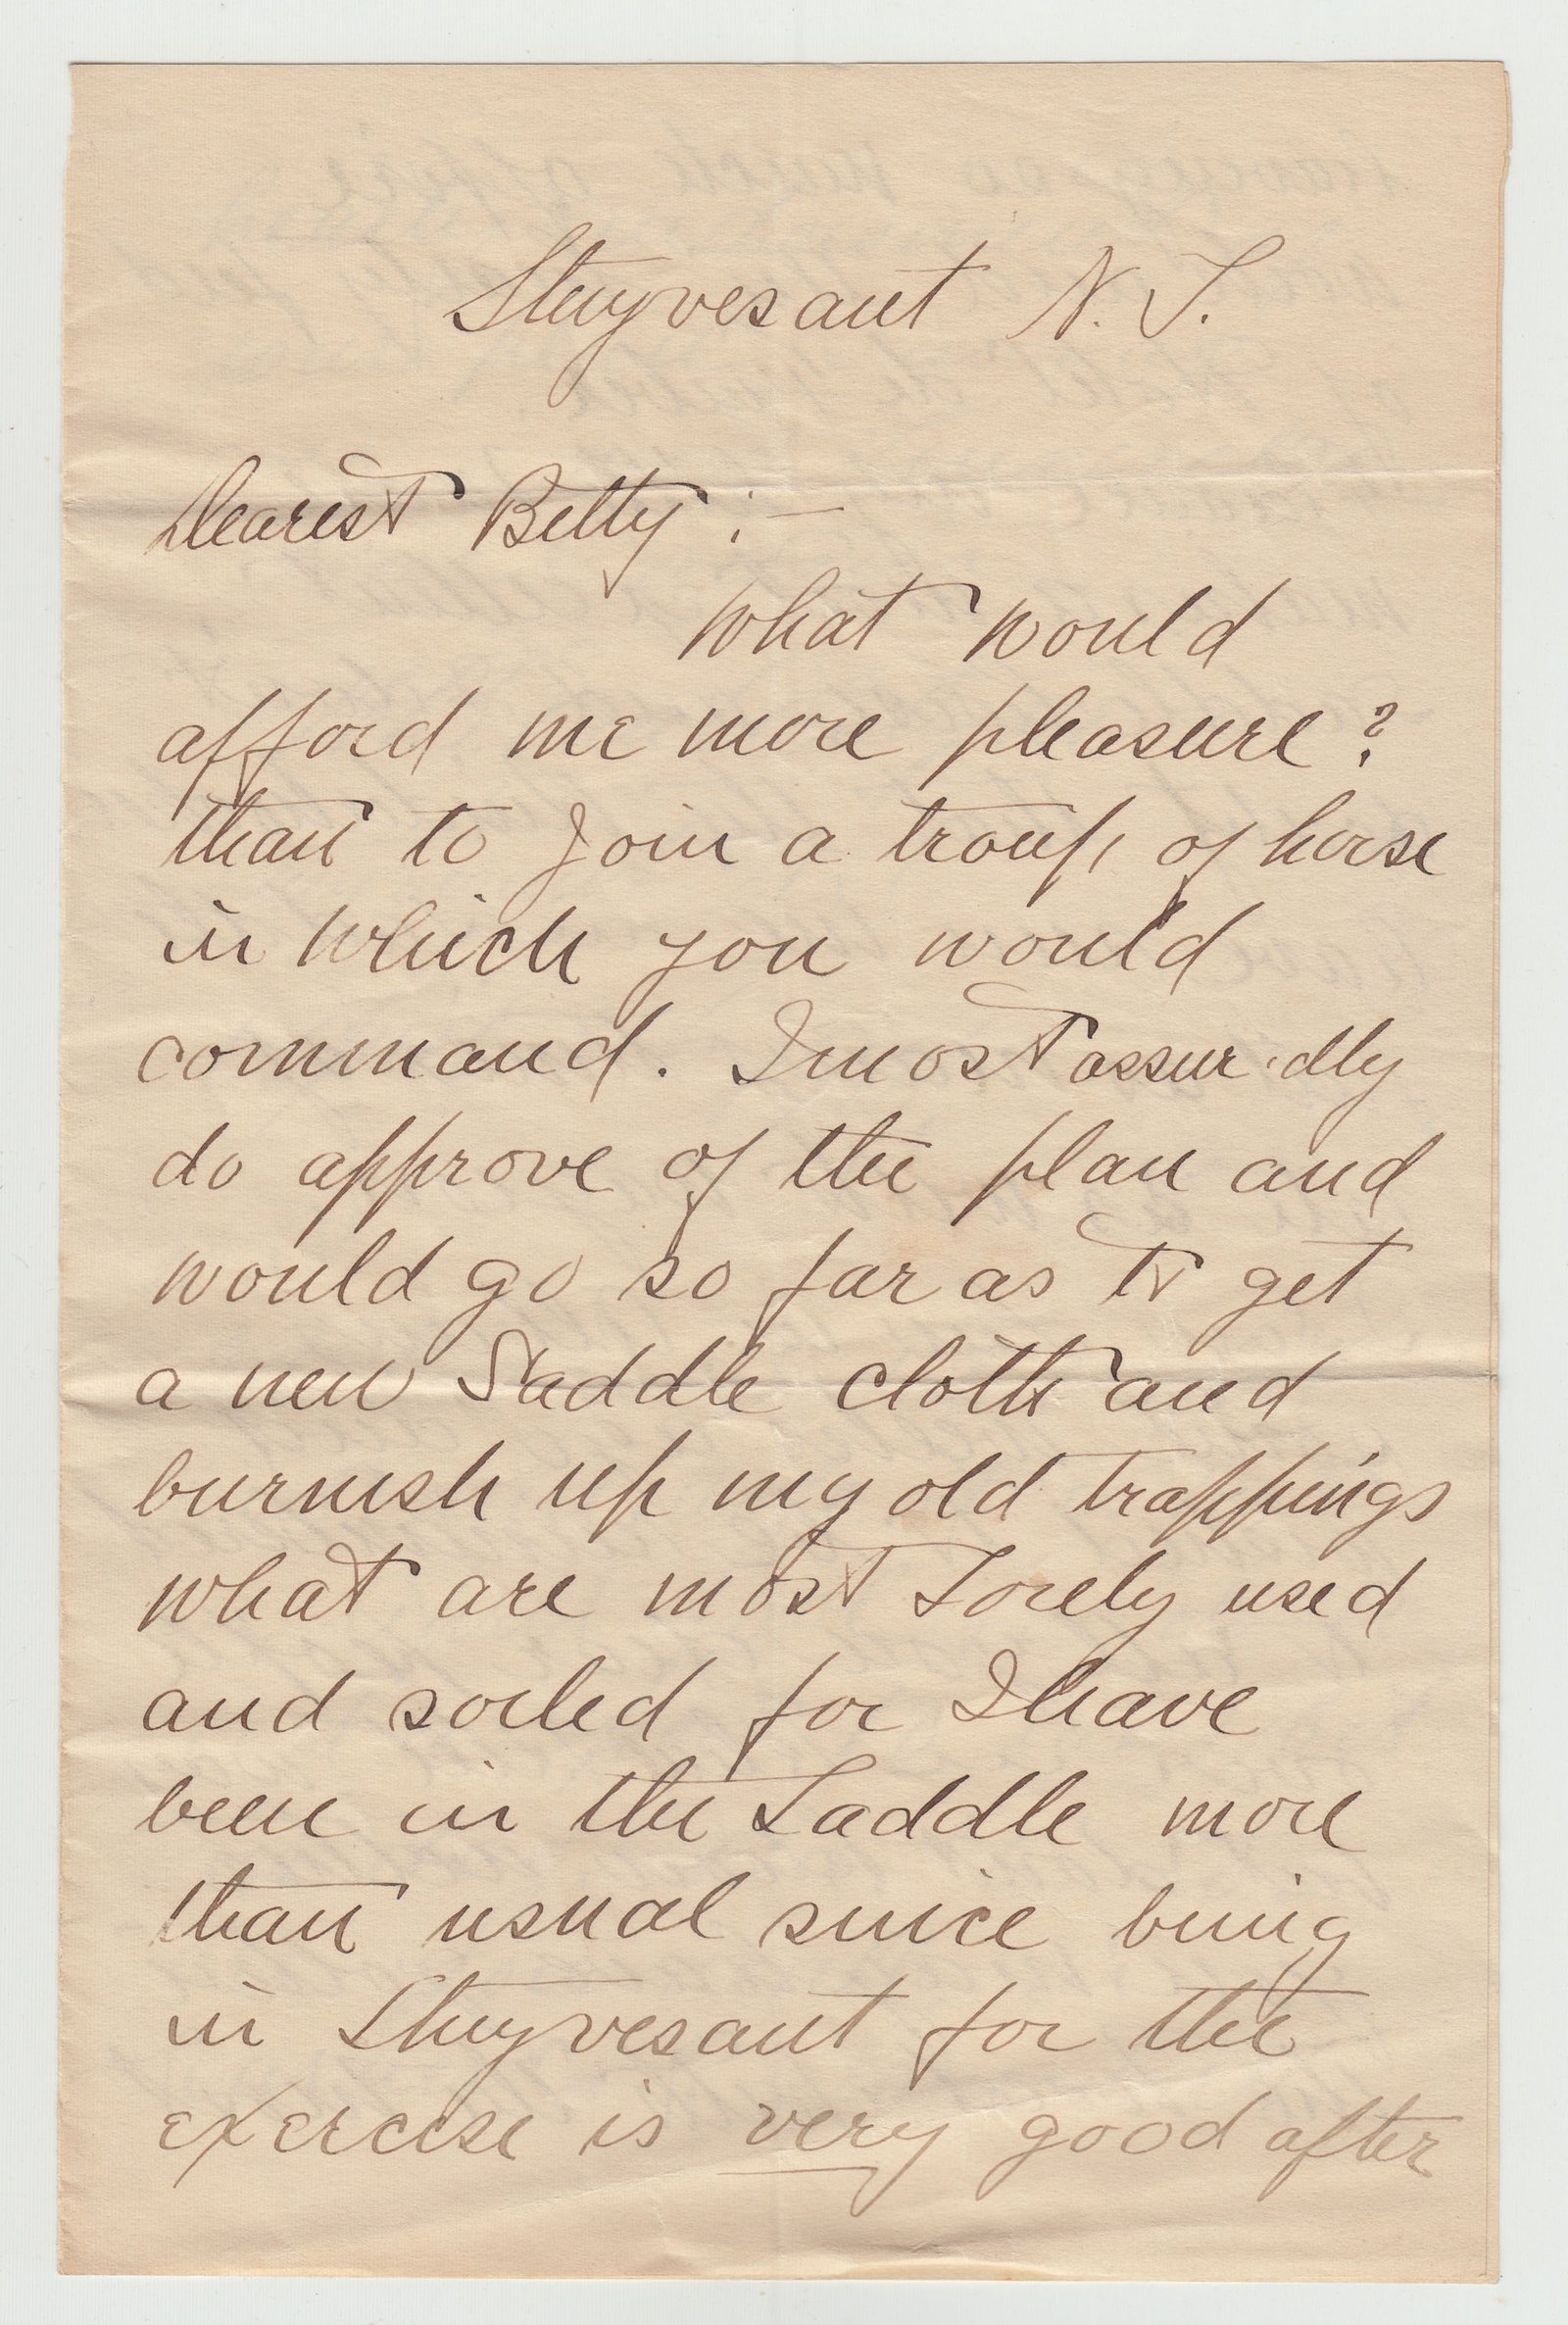 Stuyvesant N.Y.
Dearest Betty :—
What would
afford me more pleasure?
than to join a troup of horse
in which you would
command. I most assuredly
do approve of the plan and
would go so far as to get
a new Saddle cloth and
burnish up my old trappings
what are most Sorely used
and soiled for I have
been in the Saddle more
than usual since being
in Stuyvesant for the
exercise is very good after